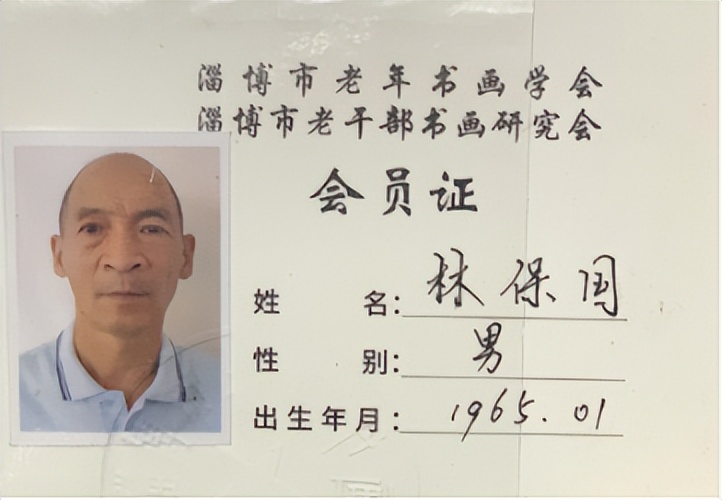 淄博市老年书画学会
淄博市老干部书画研究会
会员证
姓名：林保国
性别：男
出生年月：1965.01